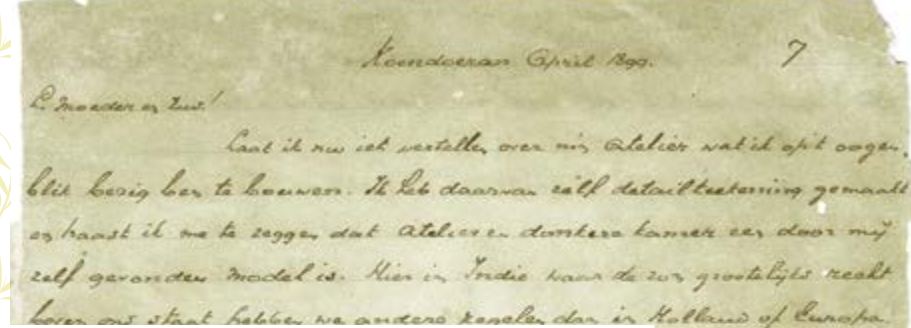 Koendoeran April 1899. 7
L. Moeder en Zus!
Laat ik nu iets vertellen over mijn Atelier wat ik op't oogen,
blik bezig ben te bouwen. Ik heb daarvan zelf detailteekening gemaakt
en haast ik me te zeggen dat Atelier en donkere kamer een door mij
zelf gevonden model is. Hier in Indie waar de zon grootelijks recht
boven ons staat hebben we andere regelen dan in Holland of Europa.